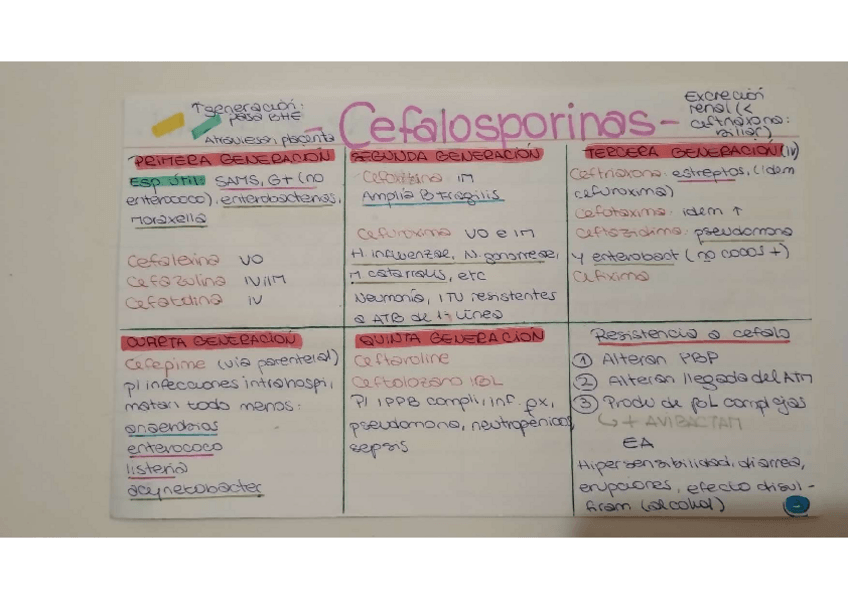 ↑generación:
pasa BHE
Atraviesan placenta
- Cefalosporinas -
Excreción
renal (<
ceftriaxona:
biliar)
PRIMERA GENERACIÓN
Esp útil: SAMS, G+ (no
enterococo), enterobacterias,
Moraxella
Cefalexina VO
Cefazolina IV/IM
Cefalotina IV
SEGUNDA GENERACIÓN
Cefoxitina IM
Amplía B Fragilis
Cefuroxima VO e IM
H. influenzae, N. gonorreae,
M catarralis, etc
Neumonía, ITU resistentes
a ATB de 1º línea
TERCERA GENERACIÓN (IV)
Ceftriaxona: estreptos, (idem
cefuroxima)
Cefotaxima: idem ↑
Ceftazidima: pseudomona
y enterobact (no cocos +)
Cefixima
CUARTA GENERACIÓN
Cefepime (vía parenteral)
p/ infecciones intrahospi,
matan todo menos:
anaerobios
enterococo
listeria
acynetobacter
QUINTA GENERACIÓN
Ceftaroline
Ceftolozano IBL
P/ IPPB compli, inf. px,
pseudomona, neutropénicos,
sepsis
Resistencia a cefalo
① Alteran PBP
② Alteran llegada del ATM
③ Produ de βL complejas
↳ + AVIBACTAM
EA
Hipersensibilidad, diarrea,
erupciones, efecto disul-
firam (alcohol)